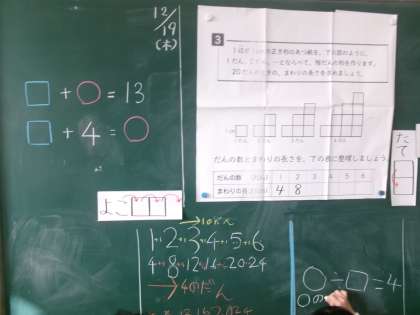 12/19
(木)
□ + ○ = 13
□ + 4 = ○
よこ
3
1辺が1cmの正方形のあつ紙を、下の図のように、
1だん、2だん、…とならべて、階だんの形を作ります。
20だんのとき、まわりの長さを求めましょう。
だんの数とまわりの長さを、下の表に整理しましょう。
だんの数 1 2 3 4 5 6
まわりの長さ 4 8
たて
1 2 3 4 5 6
4 8 12 16 20 24
→4のだん
○÷□=4
○の